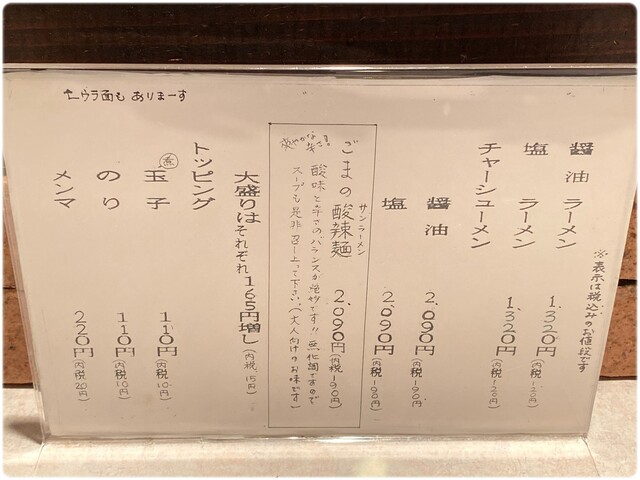 ←ウラ面も ありまーす
※表示は税込みのお値段です
醤油ラーメン 1,320円(内税120円)
塩ラーメン 1,320円(内税120円)
チャーシューメン
醤油 2,090円(内税190円)
塩 2,090円(内税190円)
爽やかな辛さ。
ごまの酸辣麺 2,090円(内税190円)
サンラーメン
酸味と辛さのバランスが絶妙です!!無化調ですので
スープも是非召し上って下さい。(大人向けのお味です)
大盛りはそれぞれ165円増し(内税15円)
トッピング
煮玉子 110円(内税10円)
のり 110円(内税10円)
メンマ 220円(内税20円)